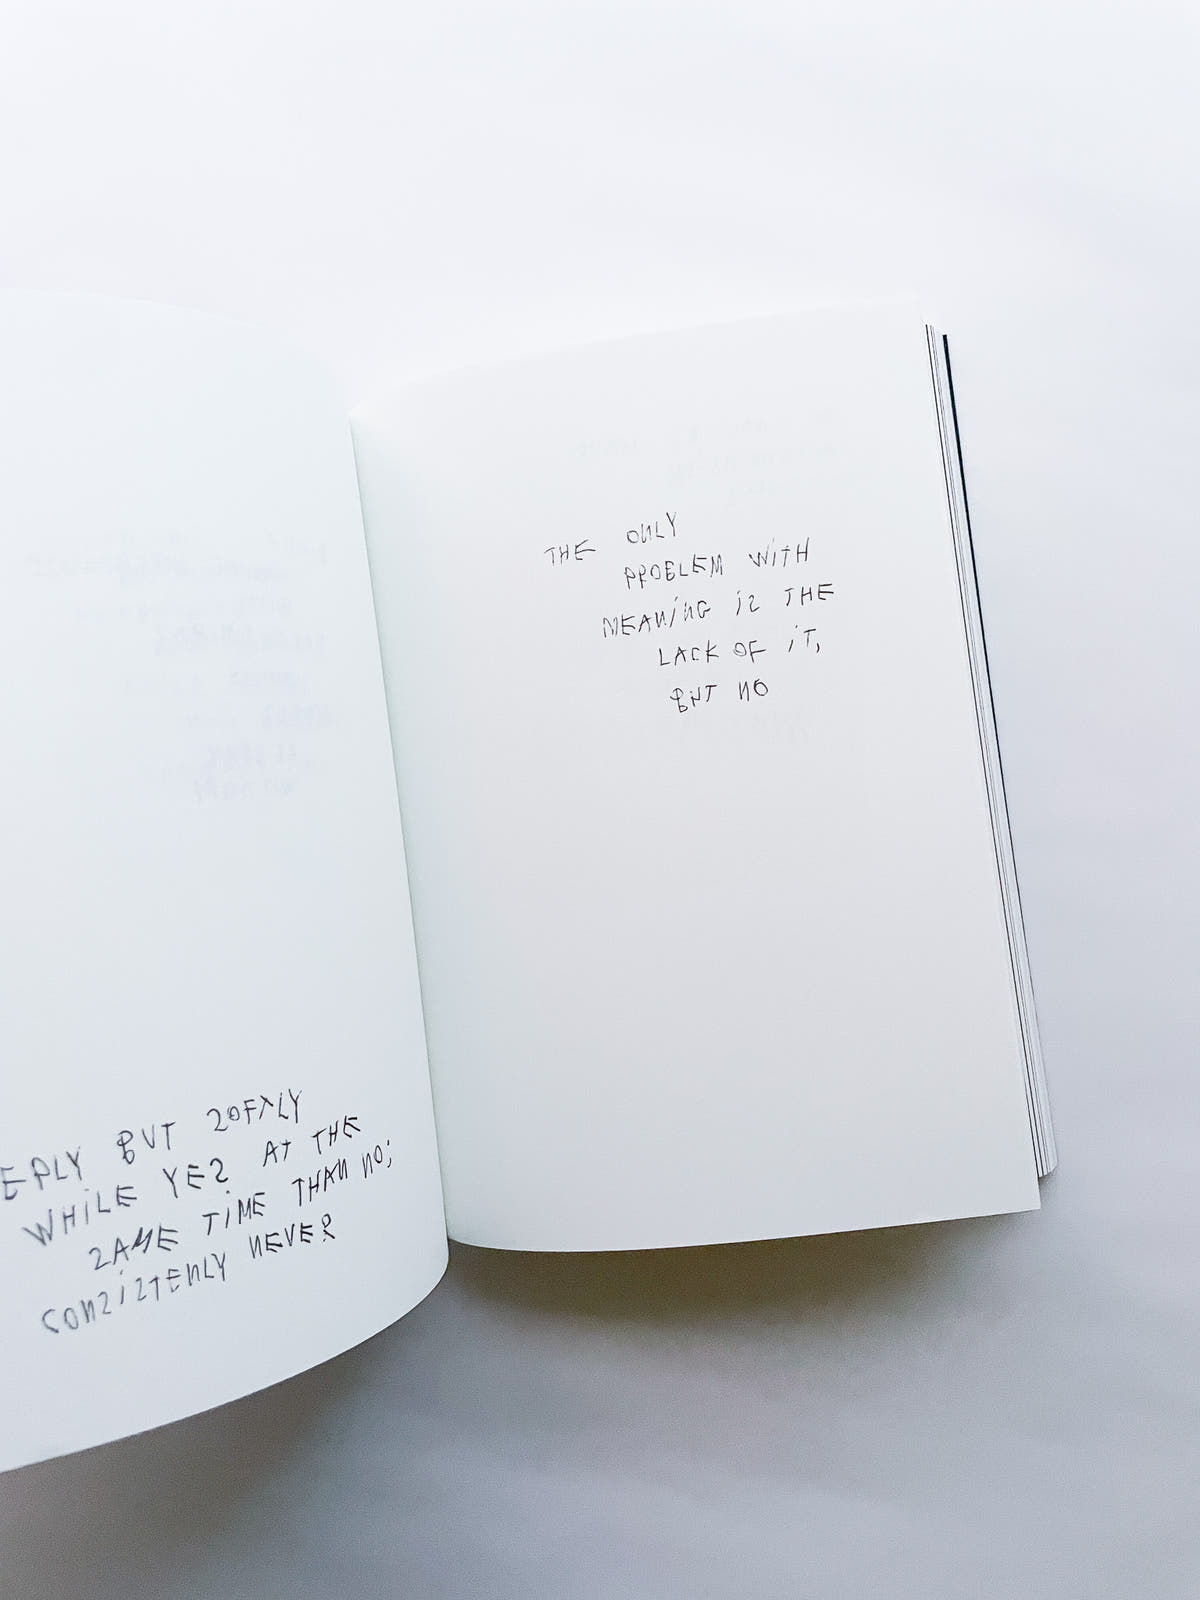 EPLY BUT SOFTLY
WHILE YES AT THE
SAME TIME THAN NO;
CONSISTENLY NEVER
THE ONLY
PROBLEM WITH
MEANING IS THE
LACK OF IT,
BUT NO